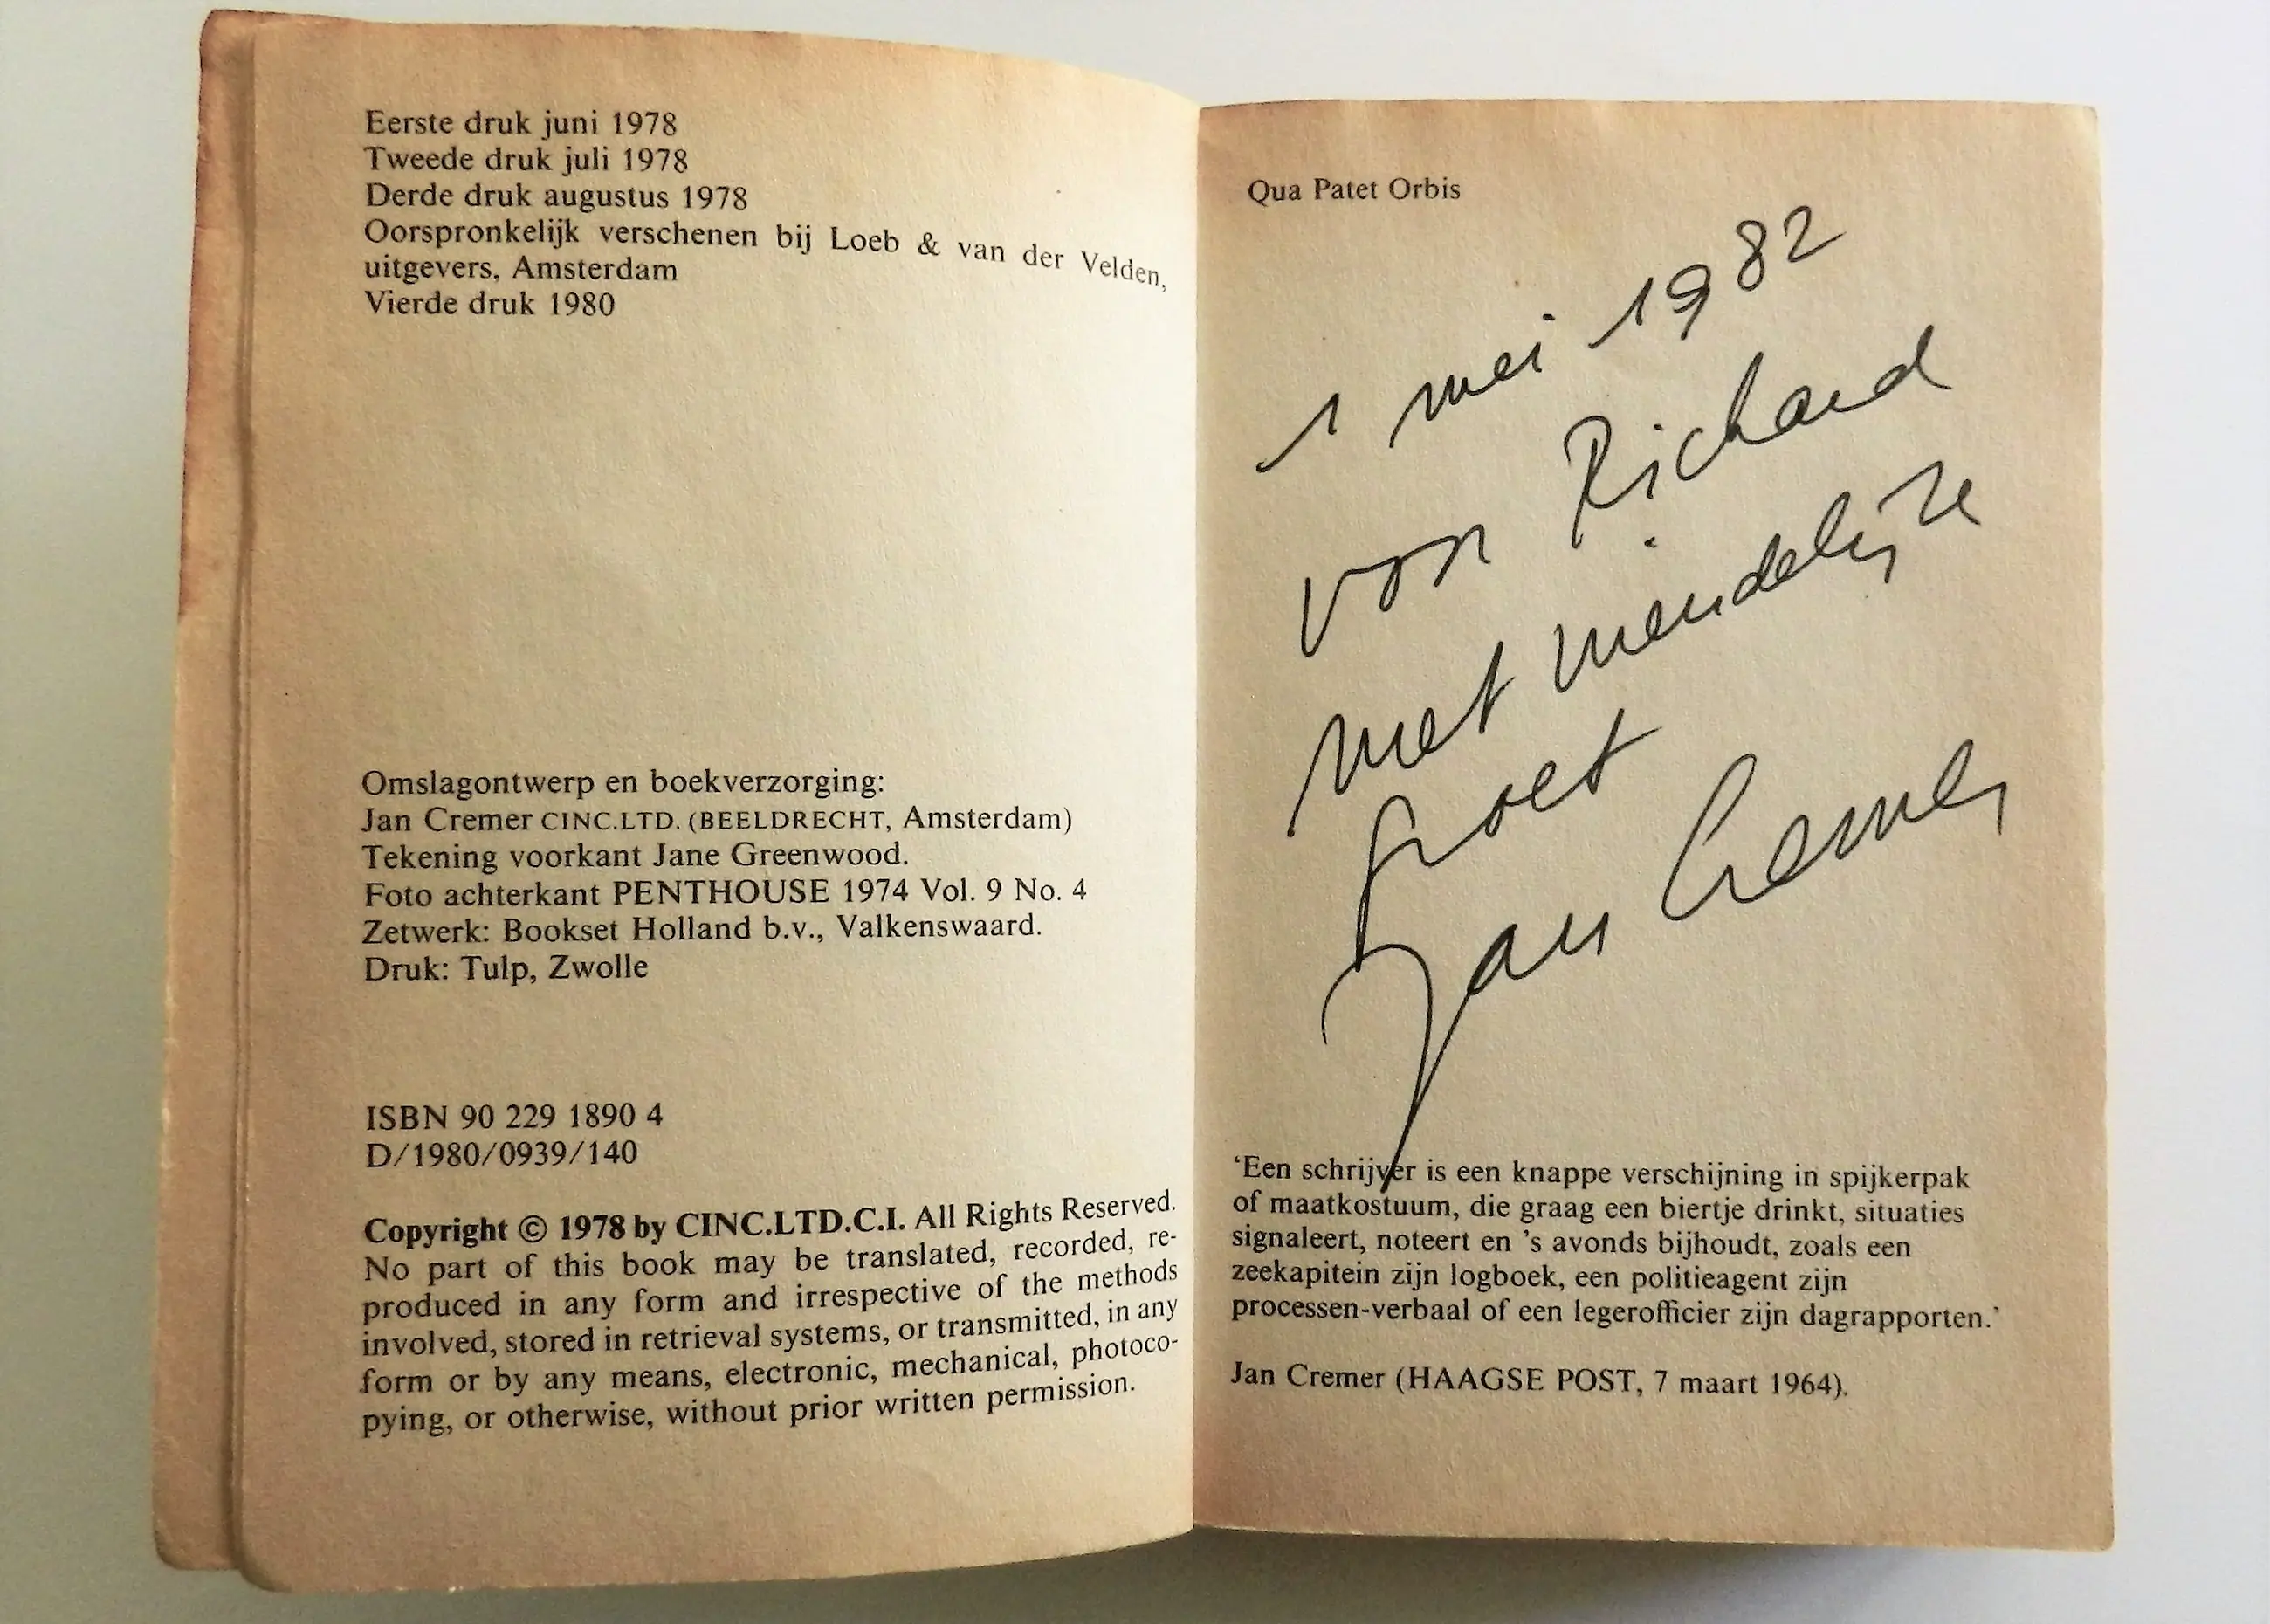 Eerste druk juni 1978
Tweede druk juli 1978
Derde druk augustus 1978
Oorspronkelijk verschenen bij Loeb & van der Velden,
uitgevers, Amsterdam
Vierde druk 1980
Omslagontwerp en boekverzorging:
Jan Cremer CINC.LTD. (BEELDRECHT, Amsterdam)
Tekening voorkant Jane Greenwood.
Foto achterkant PENTHOUSE 1974 Vol. 9 No. 4
Zetwerk: Bookset Holland b.v., Valkenswaard.
Druk: Tulp, Zwolle
ISBN 90 229 1890 4
D/1980/0939/140
Copyright © 1978 by CINC.LTD.C.I. All Rights Reserved.
No part of this book may be translated, recorded, re-
produced in any form and irrespective of the methods
involved, stored in retrieval systems, or transmitted, in any
form or by any means, electronic, mechanical, photoco-
pying, or otherwise, without prior written permission.
Qua Patet Orbis
1 mei 1982
voor Richard
met vriendelijke
groet
Jan Cremer
‘Een schrijver is een knappe verschijning in spijkerpak
of maatkostuum, die graag een biertje drinkt, situaties
signaleert, noteert en 's avonds bijhoudt, zoals een
zeekapitein zijn logboek, een politieagent zijn
processen-verbaal of een legerofficier zijn dagrapporten.’
Jan Cremer (HAAGSE POST, 7 maart 1964).